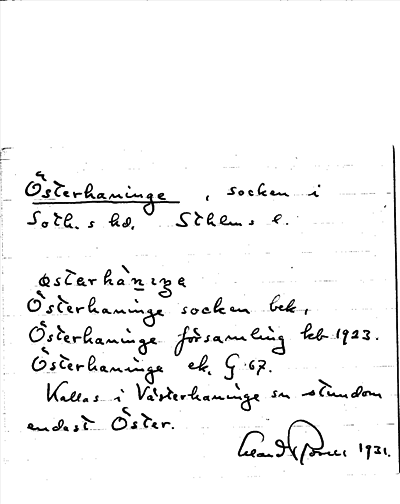 Österhaninge, socken i
Soth.s hd. Sthlms l.
østerhàninge
Österhaninge socken bek.
Österhaninge församling kb 1923.
Österhaninge ek. G 67.
Kallas i Västerhaninge sn stundom
endast Öster.
1931.